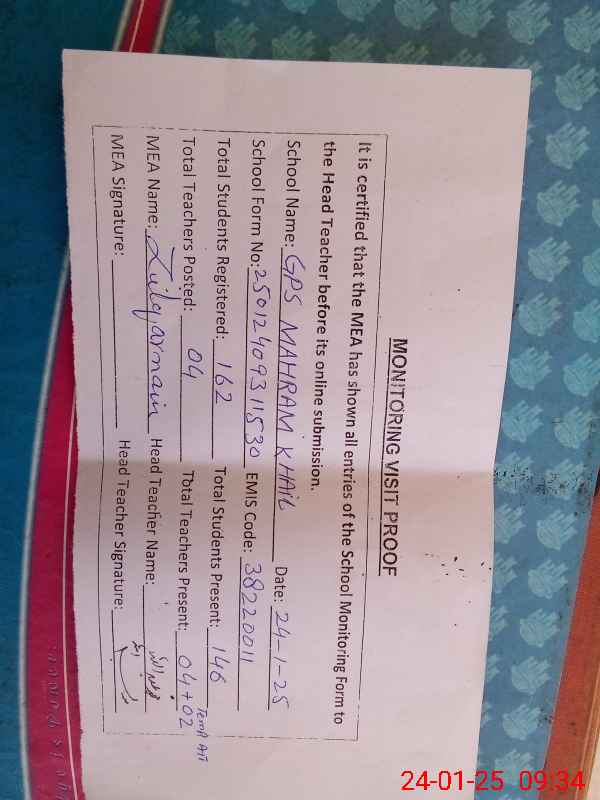 MONITORING VISIT PROOF
It is certified that the MEA has shown all entries of the School Monitoring Form to
the Head Teacher before its online submission.
School Name: GPS MAHRAM KHAIL Date: 24-1-25
School Form No: 25012409311530 EMIS Code: 38220011
Total Students Registered: 162 Total Students Present: 146
Total Teachers Posted: 04 Total Teachers Present: 04+02
MEA Name: Zulqarnain Head Teacher Name:
MEA Signature: Head Teacher Signature:
24-01-25 09:34